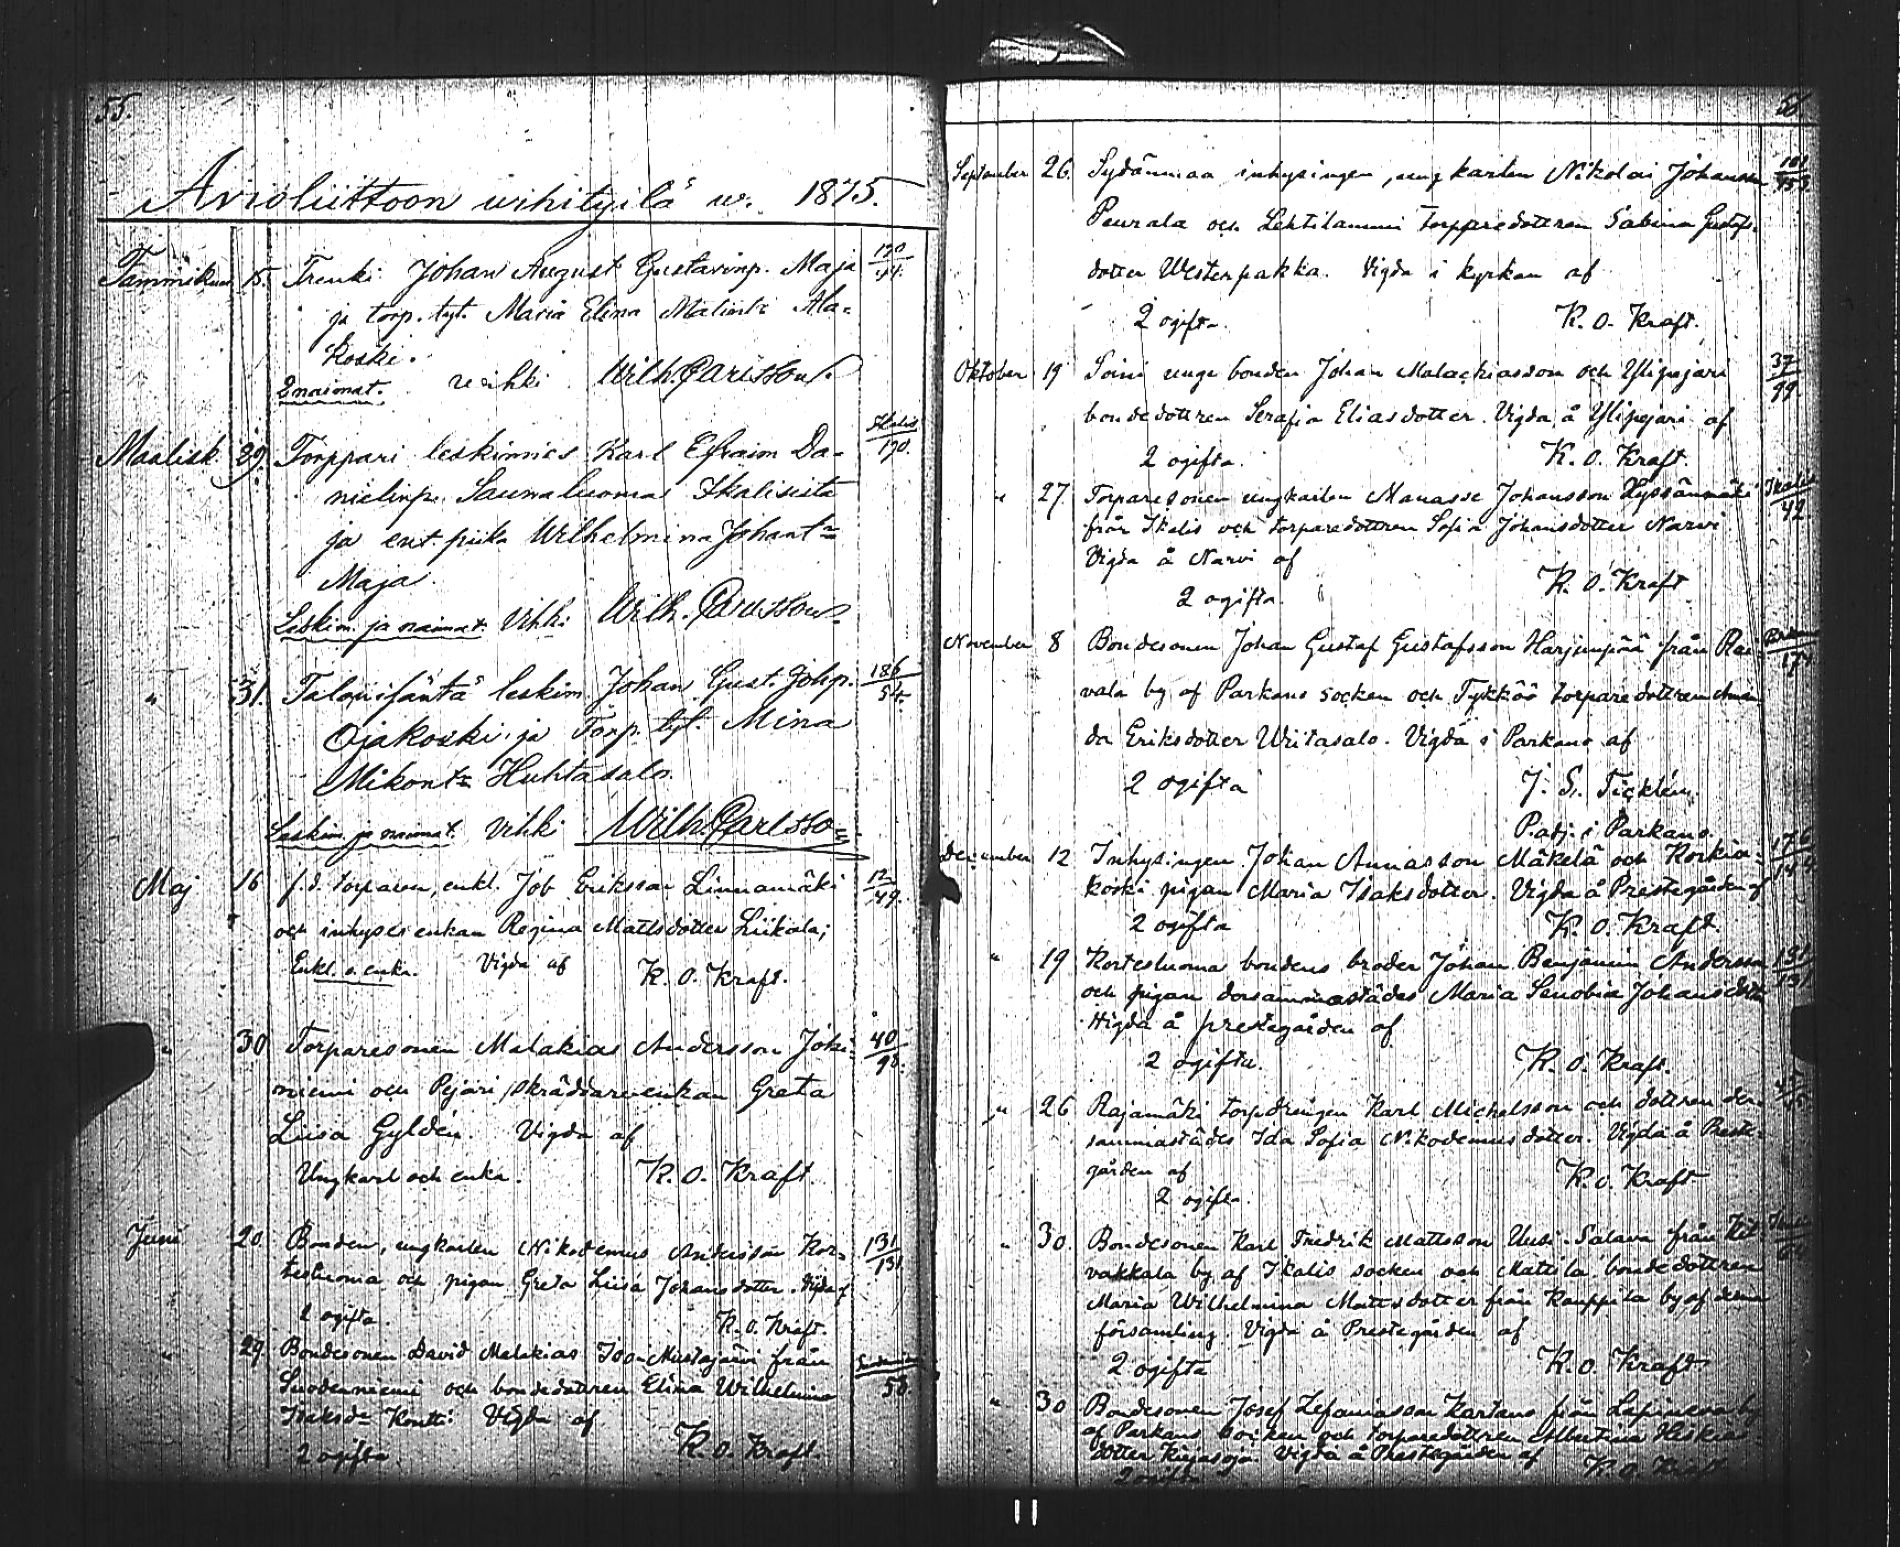 55.
Avioliittoon vihityilä w. 1875.
Tammikuu 15. Trenki Johan August Gustavinp. Maja 190/44.
ja torp. tyt. Maria Elina Matintr Ala-
koski.
2 naimat. vihki Wilh. Carlsson.
Maalisk. 29. Torppari leskimies Karl Efraim Da- Ikalis/170.
nielinp. Saunaluoma Ikalisista
ja ent. piika Wilhelmina Johant=
Maja
Leskim. ja naimat. Vihki Wilh. Carlsson
" 31. Talonisäntä leskim. Johan Gust. Johp. 186/54.
Ojakoski ja Torp. tyt. Mina
Mikont= Huhtasalo.
Leskim. ja naimat. Vihki Wilh. Carlsson
Maj 16 f.d. torparen, enkl. Job Eriksson Linnamäki 12/49.
och inhyses enkan Regina Mattsdotter Liikala;
Enkl. o. enka. Vigda af K. O. Kraft.
" 30 Torparesonen Malakias Andersson Joki- 40/98.
niemi och Pejari skräddareenkan Greta
Liisa Gyldén. Vigda af
Ungkarl och enka. K. O. Kraft
Juni 20 Bonden, ungkarlen Nikodemus Andersson Kor- 131/131
tesluoma och pigan Greta Liisa Johansdotter. Vigda af
2 ogifta. K. O. Kraft.
" 29 Bondesonen David Malakias Iso-Mustajärvi från
Suodenniemi och bondedottren Elina Wilhelmina 58.
Isaksdr Kontti. Vigda af
2 ogifta. K. O. Kraft.
September 26. Sydänmaa inhysingen, ungkarlen Nikolai Johansson
Peurala och Lehtilammi torparedottren Sabina Gustafs-
dotter Westerpakka. Vigda i kyrkan af
2 ogifta. K. O. Kraft.
Oktober 19 Soini unge bonden Johan Malachiasson och Ylipejari 37/99
bondedottren Serafia Eliasdotter. Vigda å Ylipejari af
2 ogifta. K. O. Kraft.
" 27. Torparesonen ungkarlen Manasse Johansson Kyssänmäki Ikalis/42
från Ikalis och torparedottren Sofia Johansdotter Narvi.
Vigda å Narvi af
2 ogifta. K. O. Kraft
November 8 Bondesonen Johan Gustaf Gustafsson Harjunpää från Rai- 174
vala by af Parkano socken och Tykköö torparedottren Aman
da Eriksdotter Wiitasalo. Vigda i Parkano af
2 ogifta J. S. Ticklén.
P. adj. i Parkano.
December 12 Inhysingen Johan Annasson Mäkelä och Korkia- 176/144
koski pigan Maria Isaksdotter. Vigda å Prestegården af
2 ogifta K. O. Kraft.
" 19 Kortesluoma bondens broder Johan Benjamin Andersson 131/131
och pigan dersammastädes Maria Senobia Johansdotter
Vigda å prestegården af
2 ogifta. K. O. Kraft.
" 26 Rajamäki torpdrengen Karl Michelsson och dottren der-
sammastädes Ida Sofia Nikodemusdotter. Vigda å Preste-
gården af K. O. Kraft
2 ogifta.
" 30. Bondesonen Karl Fredrik Mattsson Uusi-Salava från Kil
vakkala by af Ikalis socken och Mattila bondedottren
Maria Wilhelmina Mattsdotter från Kauppila by af denna
församling. Vigda å Prestegården af
2 ogifta K. O. Kraft
" 30 Bondesonen Josef Zefaniasson Kartano från Lapinneva by
af Parkano socken och torparedottren Albertina Hiskias-
dotter Vigda å Prestegården af
2 ogifta K. O. Kraft